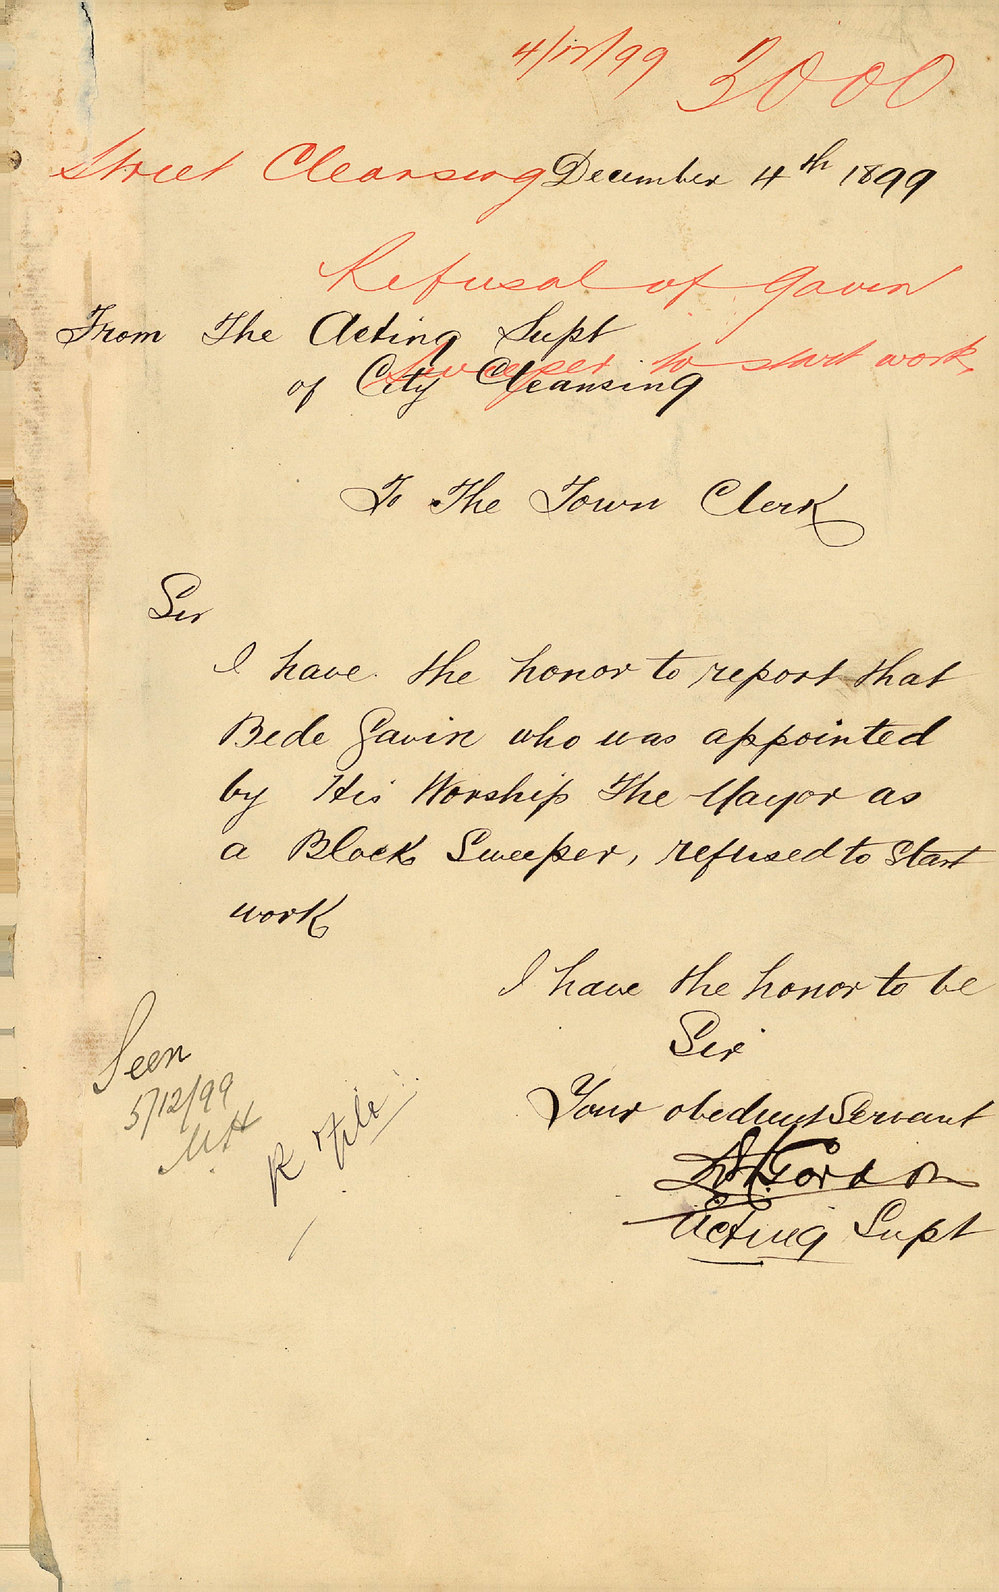 4/12/99 3000
Street Cleansing December 4th 1899
Refusal of Gavin
From The Acting Supt
Sweeper to start work
of City Cleansing
To The Town Clerk
Sir
I have the honor to report that
Bede Gavin who was appointed
by His Worship The Mayor as
a Block Sweeper, refused to Start
work
I have the honor to be
Sir
Your obedient Servant
Gordon
Acting Supt
Seen
5/12/99
MH
R & file